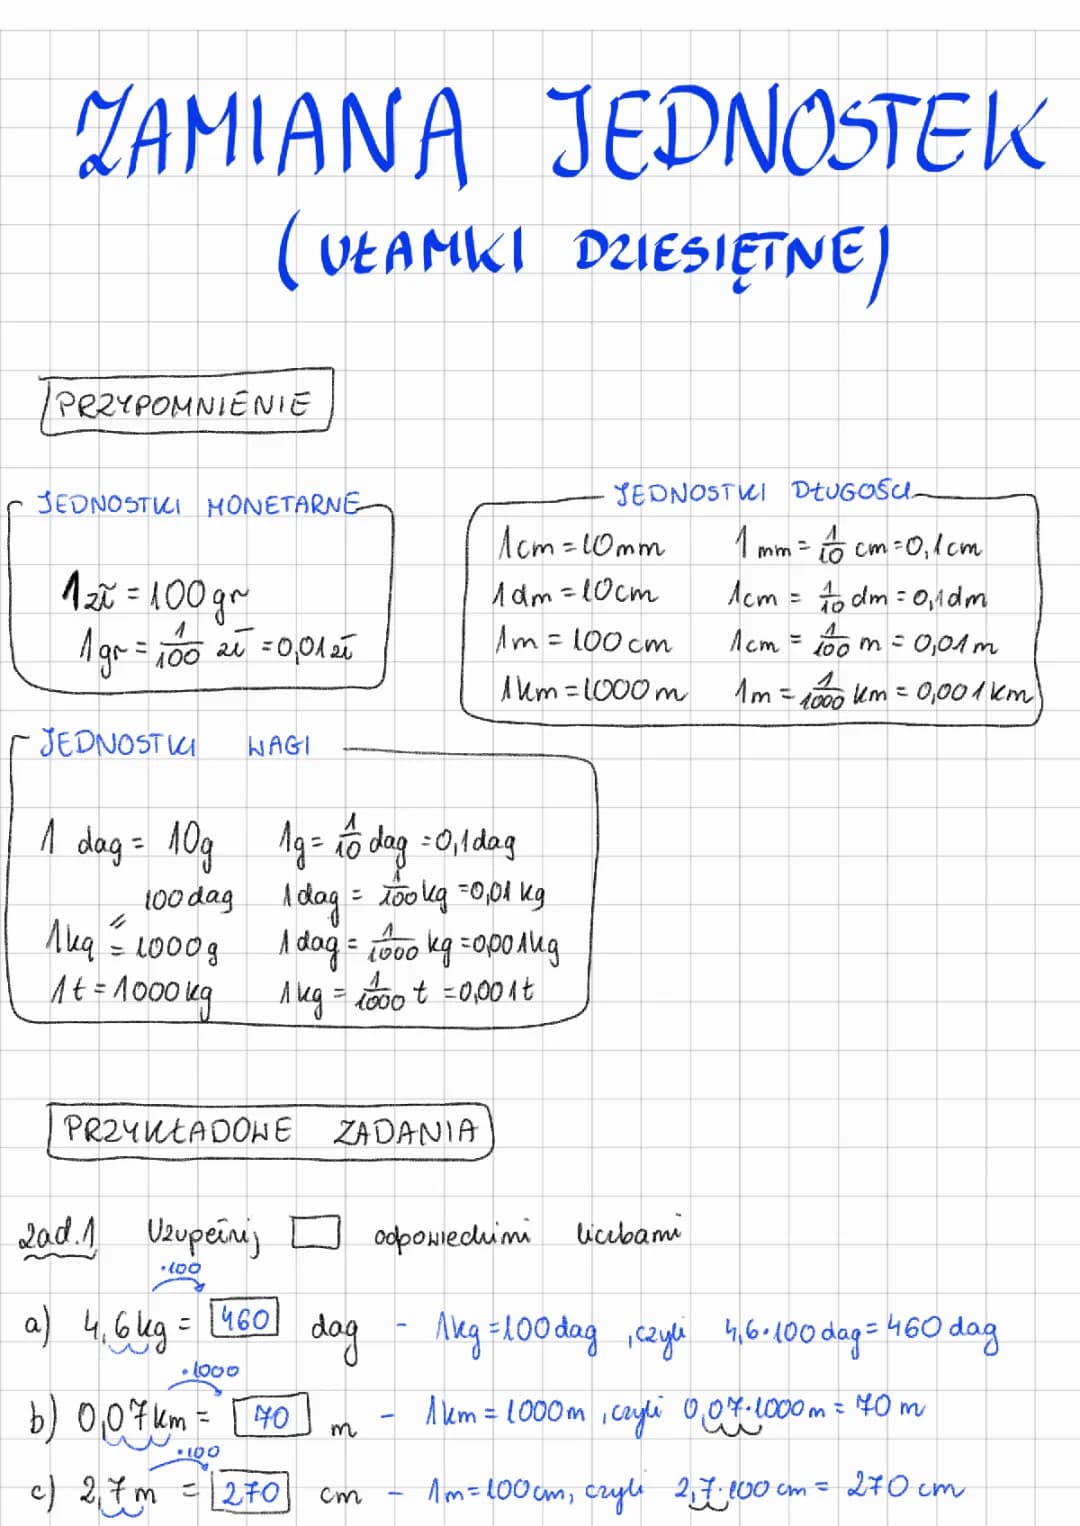 ZAMIANA JEDNOSTEK
(UŁAMKI DZIESIĘTNE)
PRZYPOMNIENIE
JEDNOSTKI MONETARNE
1 zł = 100 gr
1 gr = 1/100 zł = 0,01 zł
JEDNOSTKI DŁUGOŚCI
1 cm = 10 mm 1 mm = 1/10 cm = 0,1 cm
1 dm = 10 cm 1 cm = 1/10 dm = 0,1 dm
1 m = 100 cm 1 cm = 1/100 m = 0,01 m
1 km = 1000 m 1 m = 1/1000 km = 0,001 km
JEDNOSTKI WAGI
1 dag = 10 g 1 g = 1/10 dag = 0,1 dag
100 dag 1 dag = 1/100 kg = 0,01 kg
=
1 kg = 1000 g 1 dag = 1/1000 kg = 0,001 kg
1 t = 1000 kg 1 kg = 1/1000 t = 0,001 t
PRZYKŁADOWE ZADANIA
zad. 1 Uzupełnij □ odpowiednimi liczbami
·100
a) 4,6 kg = 460 dag - 1 kg = 100 dag, czyli 4,6·100 dag = 460 dag
·1000
b) 0,07 km = 70 m - 1 km = 1000 m, czyli 0,07·1000 m = 70 m
·100
c) 2,7 m = 270 cm - 1 m = 100 cm, czyli 2,7·100 cm = 270 cm